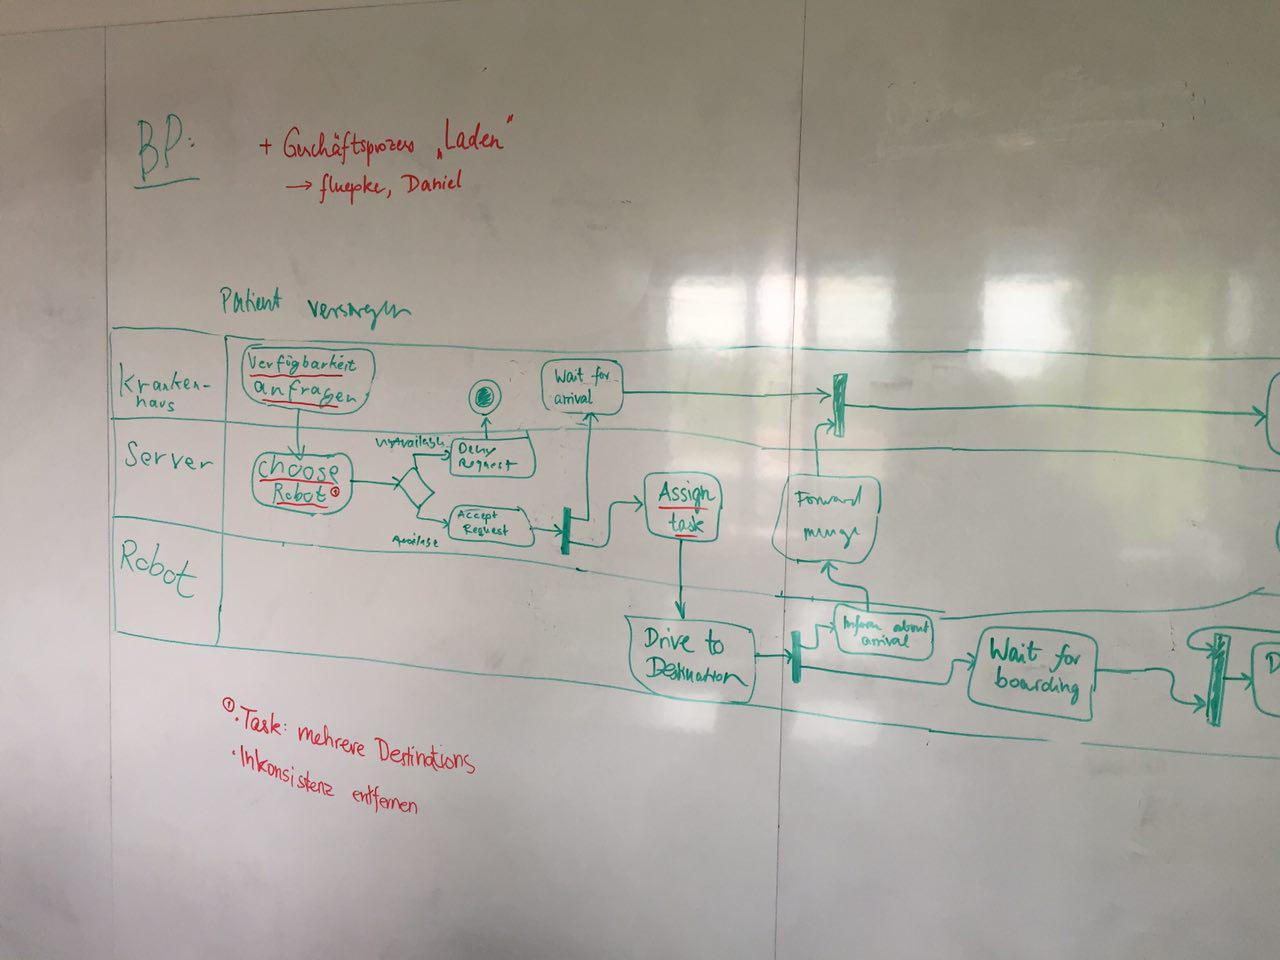 BP:
+ Geschäftsprozess „Laden"
→ fluepke, Daniel
Patient versorgen
Kranken-
haus
Verfügbarkeit
anfragen
Wait for
arrival
Server
choose
Robot ①
Unavailable
Deny
Request
Available
Accept
Request
Assign
task
Forward
Robot
Drive to
Destination
Inform about
arrival
Wait for
boarding
D
① · Task: mehrere Destinations
· Inkonsistenz entfernen